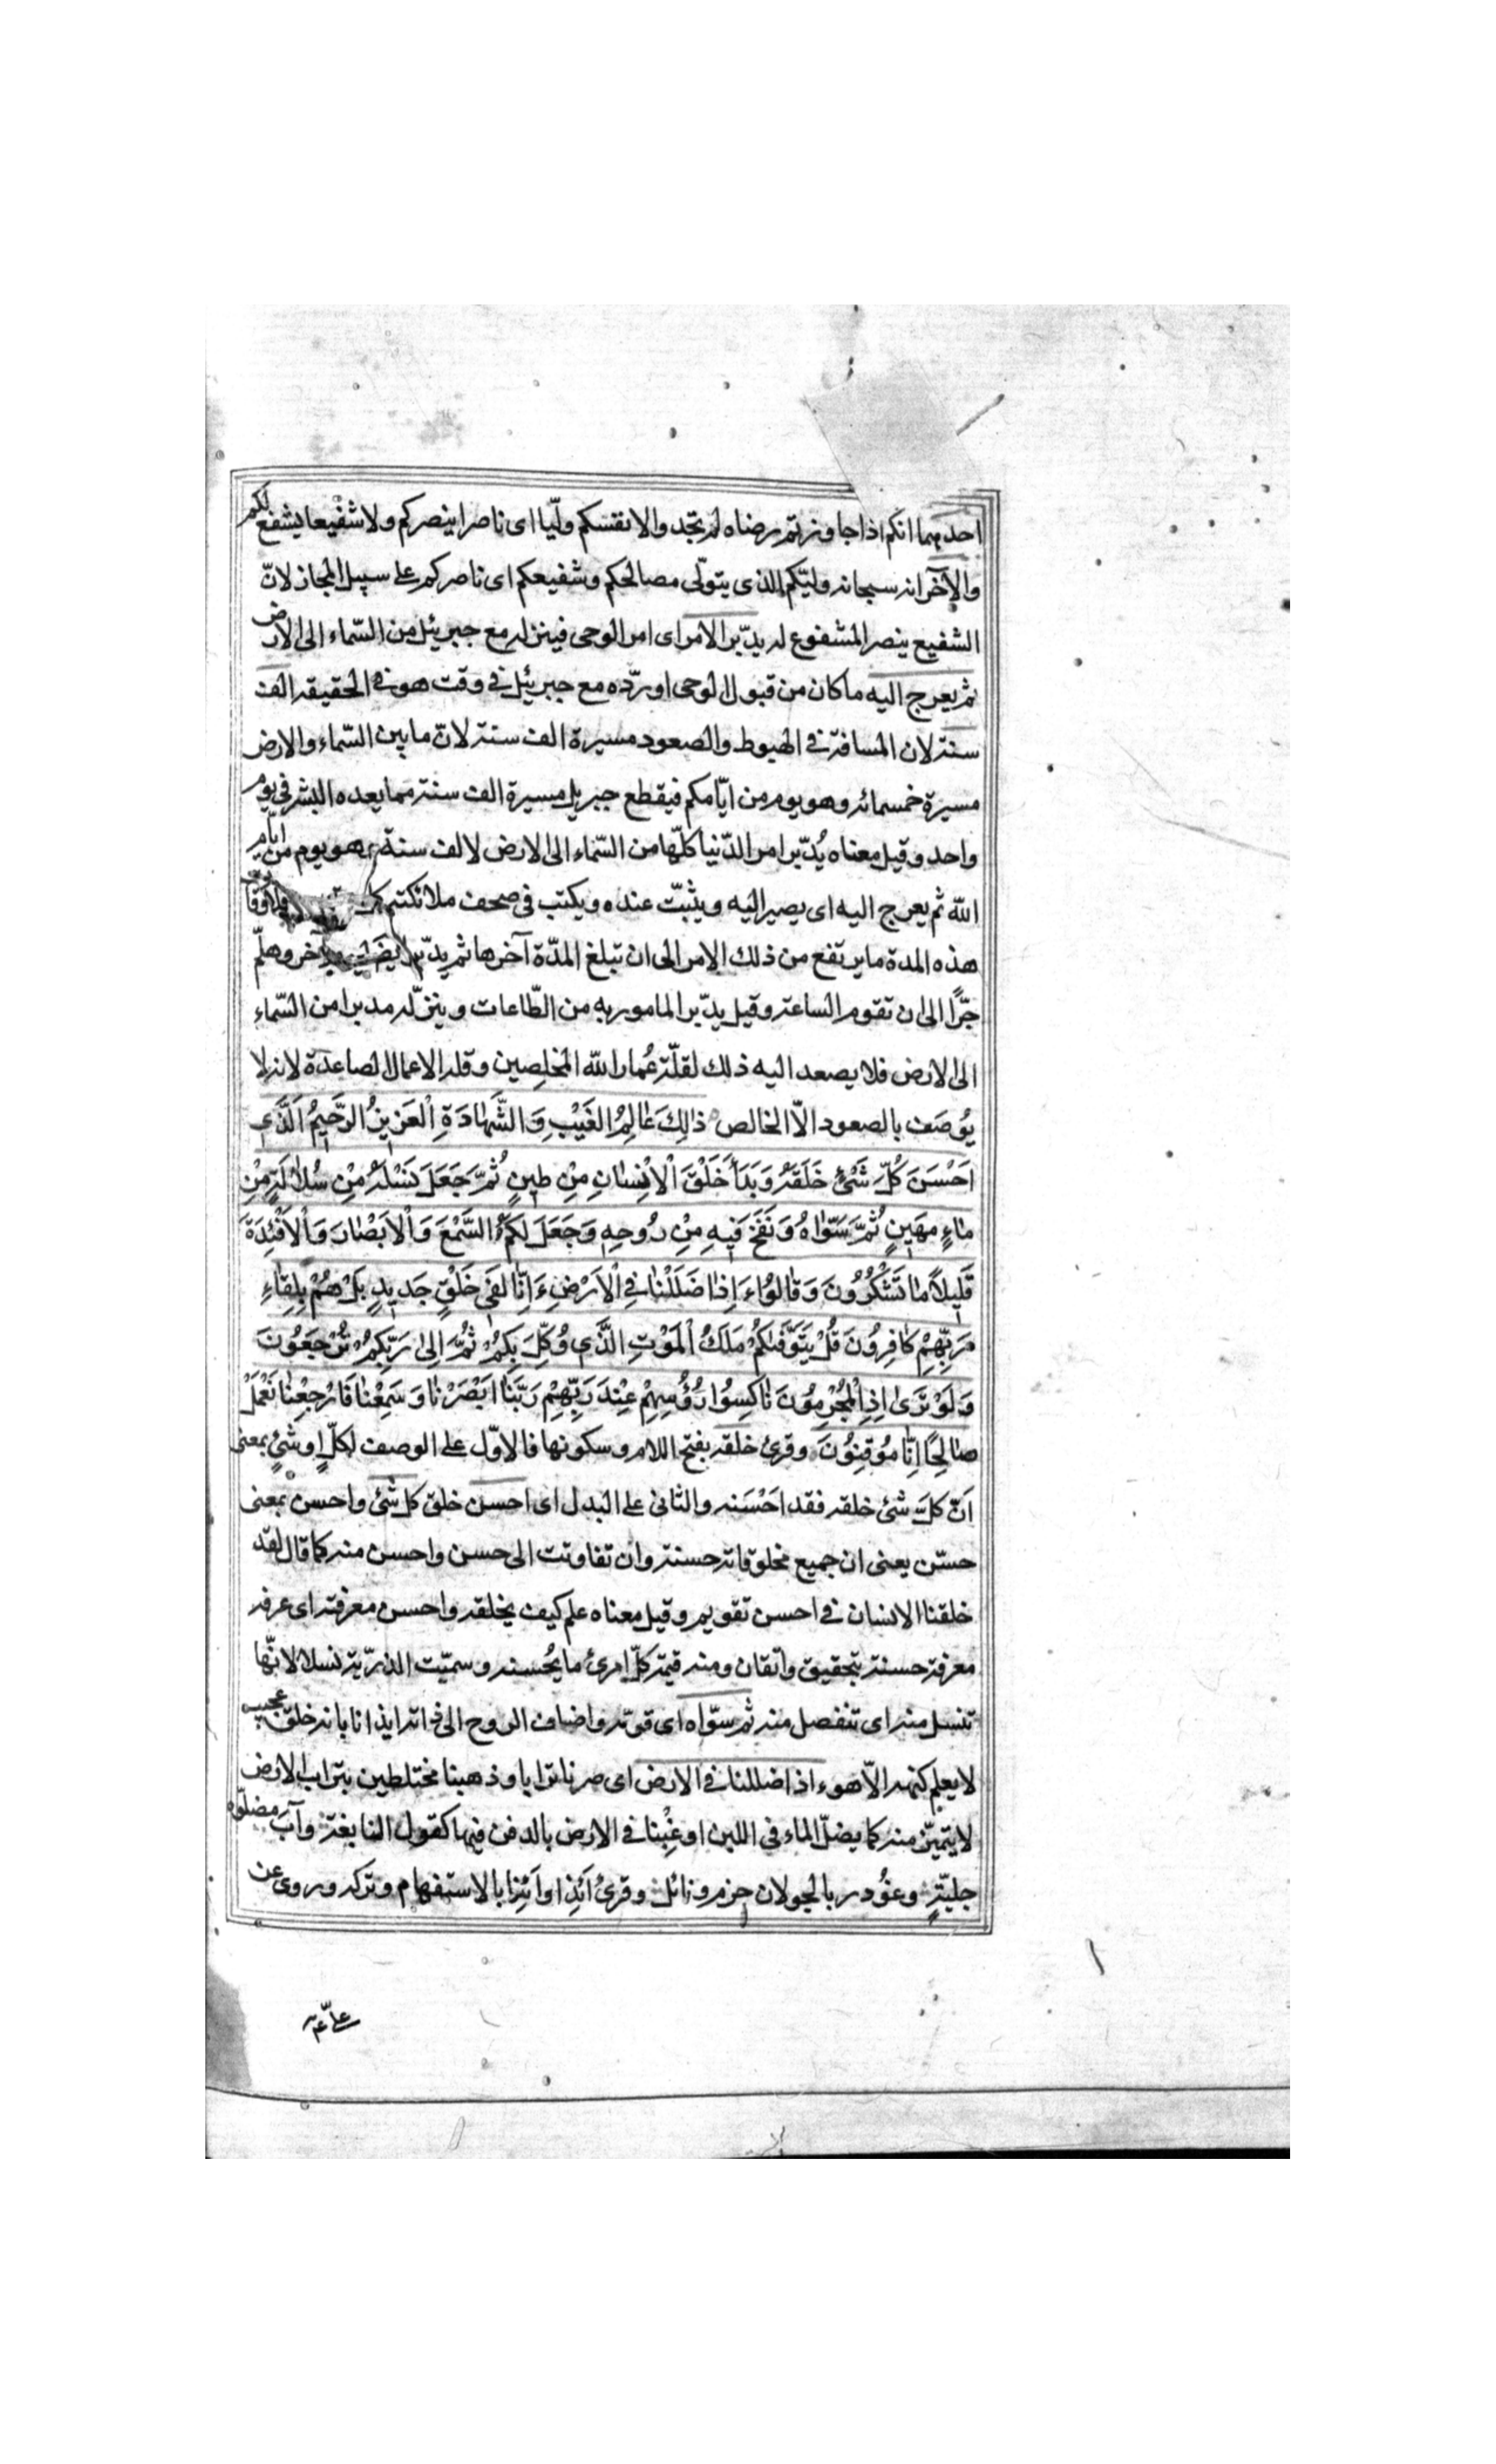 احدهما انكم اذا جاوزتم رضاه لم تجدوا لانفسكم وليّا اى ناصرا ينصركم ولا شفيعا يشفع لكم
والآخر انه سبحانه وليّكم الذى يتولّى مصالحكم وشفيعكم اى ناصركم على سبيل المجاز لانّ
الشفيع ينصر المشفوع له يدبّر الامر اى امر الوحى فينزله مع جبرئيل من السّماء الى الارض
ثم يعرج اليه ما كان من قبول الوحى او ردّه مع جبرئيل فى وقت هو فى الحقيقه الف
سنة لان المسافة فى الهبوط والصعود مسيرة الف سنة لانّ ما بين السّماء والارض
مسيرة خمسمائه وهو يوم من ايّامكم فيقطع جبريل مسيرة الف سنة مما يعده البشر فى يوم
واحد وقيل معناه يُدبّر امر الدّنيا كلّها من السّماء الى الارض لالف سنة وهو يوم من ايّام
اللّه ثم يعرج اليه اى يصير اليه ويثبّت عنده ويكتب فى صحف ملائكته كل
هذه المدة ما يرتفع من ذلك الامر الى ان تبلغ المدّة آخرها ثم يدبّر ايضا ليوم آخر وهلمّ
جرًّا الى ان تقوم الساعة وقيل يدبّر المامور به من الطّاعات وينزّله مدبرا من السّماء
الى الارض فلا يصعد اليه ذلك لقلّة عُمار اللّه المخلصين وقلة الاعمال الصاعدة لانه لا
يُوصَف بالصعود الّا الخالص ذٰلِكَ عَالِمُ الغَيْبِ وَالشَّهَادَةِ الْعَزِيزُ الرَّحِيمُ الَّذِي
اَحْسَنَ كُلَّ شَىْءٍ خَلَقَهُ وَبَدَأَ خَلْقَ الْاِنْسَانِ مِنْ طِينٍ ثُمَّ جَعَلَ نَسْلَهُ مِنْ سُلَالَةٍ مِنْ
مَاءٍ مَهِينٍ ثُمَّ سَوَّاهُ وَنَفَخَ فِيهِ مِنْ رُوحِهِ وَجَعَلَ لَكُمُ السَّمْعَ وَالْاَبْصَارَ وَالْاَفْئِدَةَ
قَلِيلًا مَا تَشْكُرُونَ وَقَالُوا ءَاِذَا ضَلَلْنَا فِى الْاَرْضِ ءَاِنَّا لَفِى خَلْقٍ جَدِيدٍ بَلْ هُمْ بِلِقَاءِ
رَبِّهِمْ كَافِرُونَ قُلْ يَتَوَفَّاكُمْ مَلَكُ الْمَوْتِ الَّذِي وُكِّلَ بِكُمْ ثُمَّ اِلَى رَبِّكُمْ تُرْجَعُونَ
وَلَوْ تَرَى اِذِ الْمُجْرِمُونَ نَاكِسُوا رُؤُسِهِمْ عِنْدَ رَبِّهِمْ رَبَّنَا اَبْصَرْنَا وَسَمِعْنَا فَارْجِعْنَا نَعْمَلْ
صَالِحًا اِنَّا مُوقِنُونَ وقرئ خلقه بفتح اللام وسكونها فالاوّل على الوصف لكلٍّ او شئٍ بمعنى
اَنّ كلّ شئ خلقه فقد اَحْسَنه والثانى على البدل اى احسن خلق كل شئ واحسن بمعنى
حسّن يعنى ان جميع مخلوقاته حسنة وان تفاوتت الى حسن واحسن منه كما قال لقد
خلقنا الانسان فى احسن تقويم وقيل معناه علم كيف يخلقه واحسن معرفته اى عرفه
معرفة حسنة بتحقيق واتقان ومنه قيمة كلّ امرئ ما يُحسنه وسميّت الذرّية نسلا لانّها
تنسل منه اى تنفصل منه ثم سوّاه اى قوّمه واضاف الروح الى ذاته ايذانا بانه خلق عجيب
لا يعلم كنهه الّا هو ءاذا ضللنا فى الارض اى صرنا ترابا وذهبنا مختلطين بتراب الارض
لا يتميّز منه كما يضلّ الماء فى اللبن او غِبْنا فى الارض بالدفن فيها كقول النابغة وآب مضلّوه
جليّةٍ وغُودر بالجولان حزم ونائل وقرئ اَئِذا واَئِنا بالاستفهام وتركه وروى عن
علىّ ع م